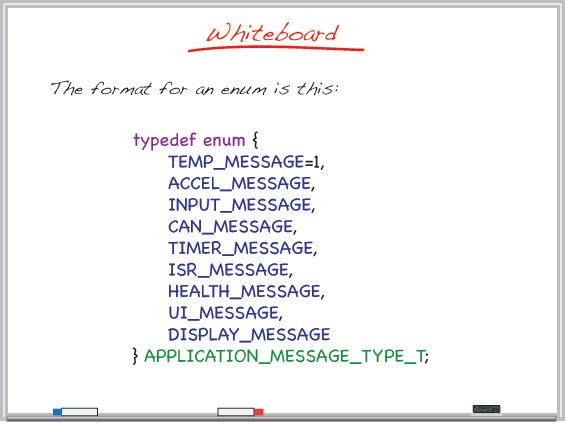 Whiteboard
The format for an enum is this:
typedef enum {
TEMP_MESSAGE=1,
ACCEL_MESSAGE,
INPUT_MESSAGE,
CAN_MESSAGE,
TIMER_MESSAGE,
ISR_MESSAGE,
HEALTH_MESSAGE,
UI_MESSAGE,
DISPLAY_MESSAGE
} APPLICATION_MESSAGE_TYPE_T;